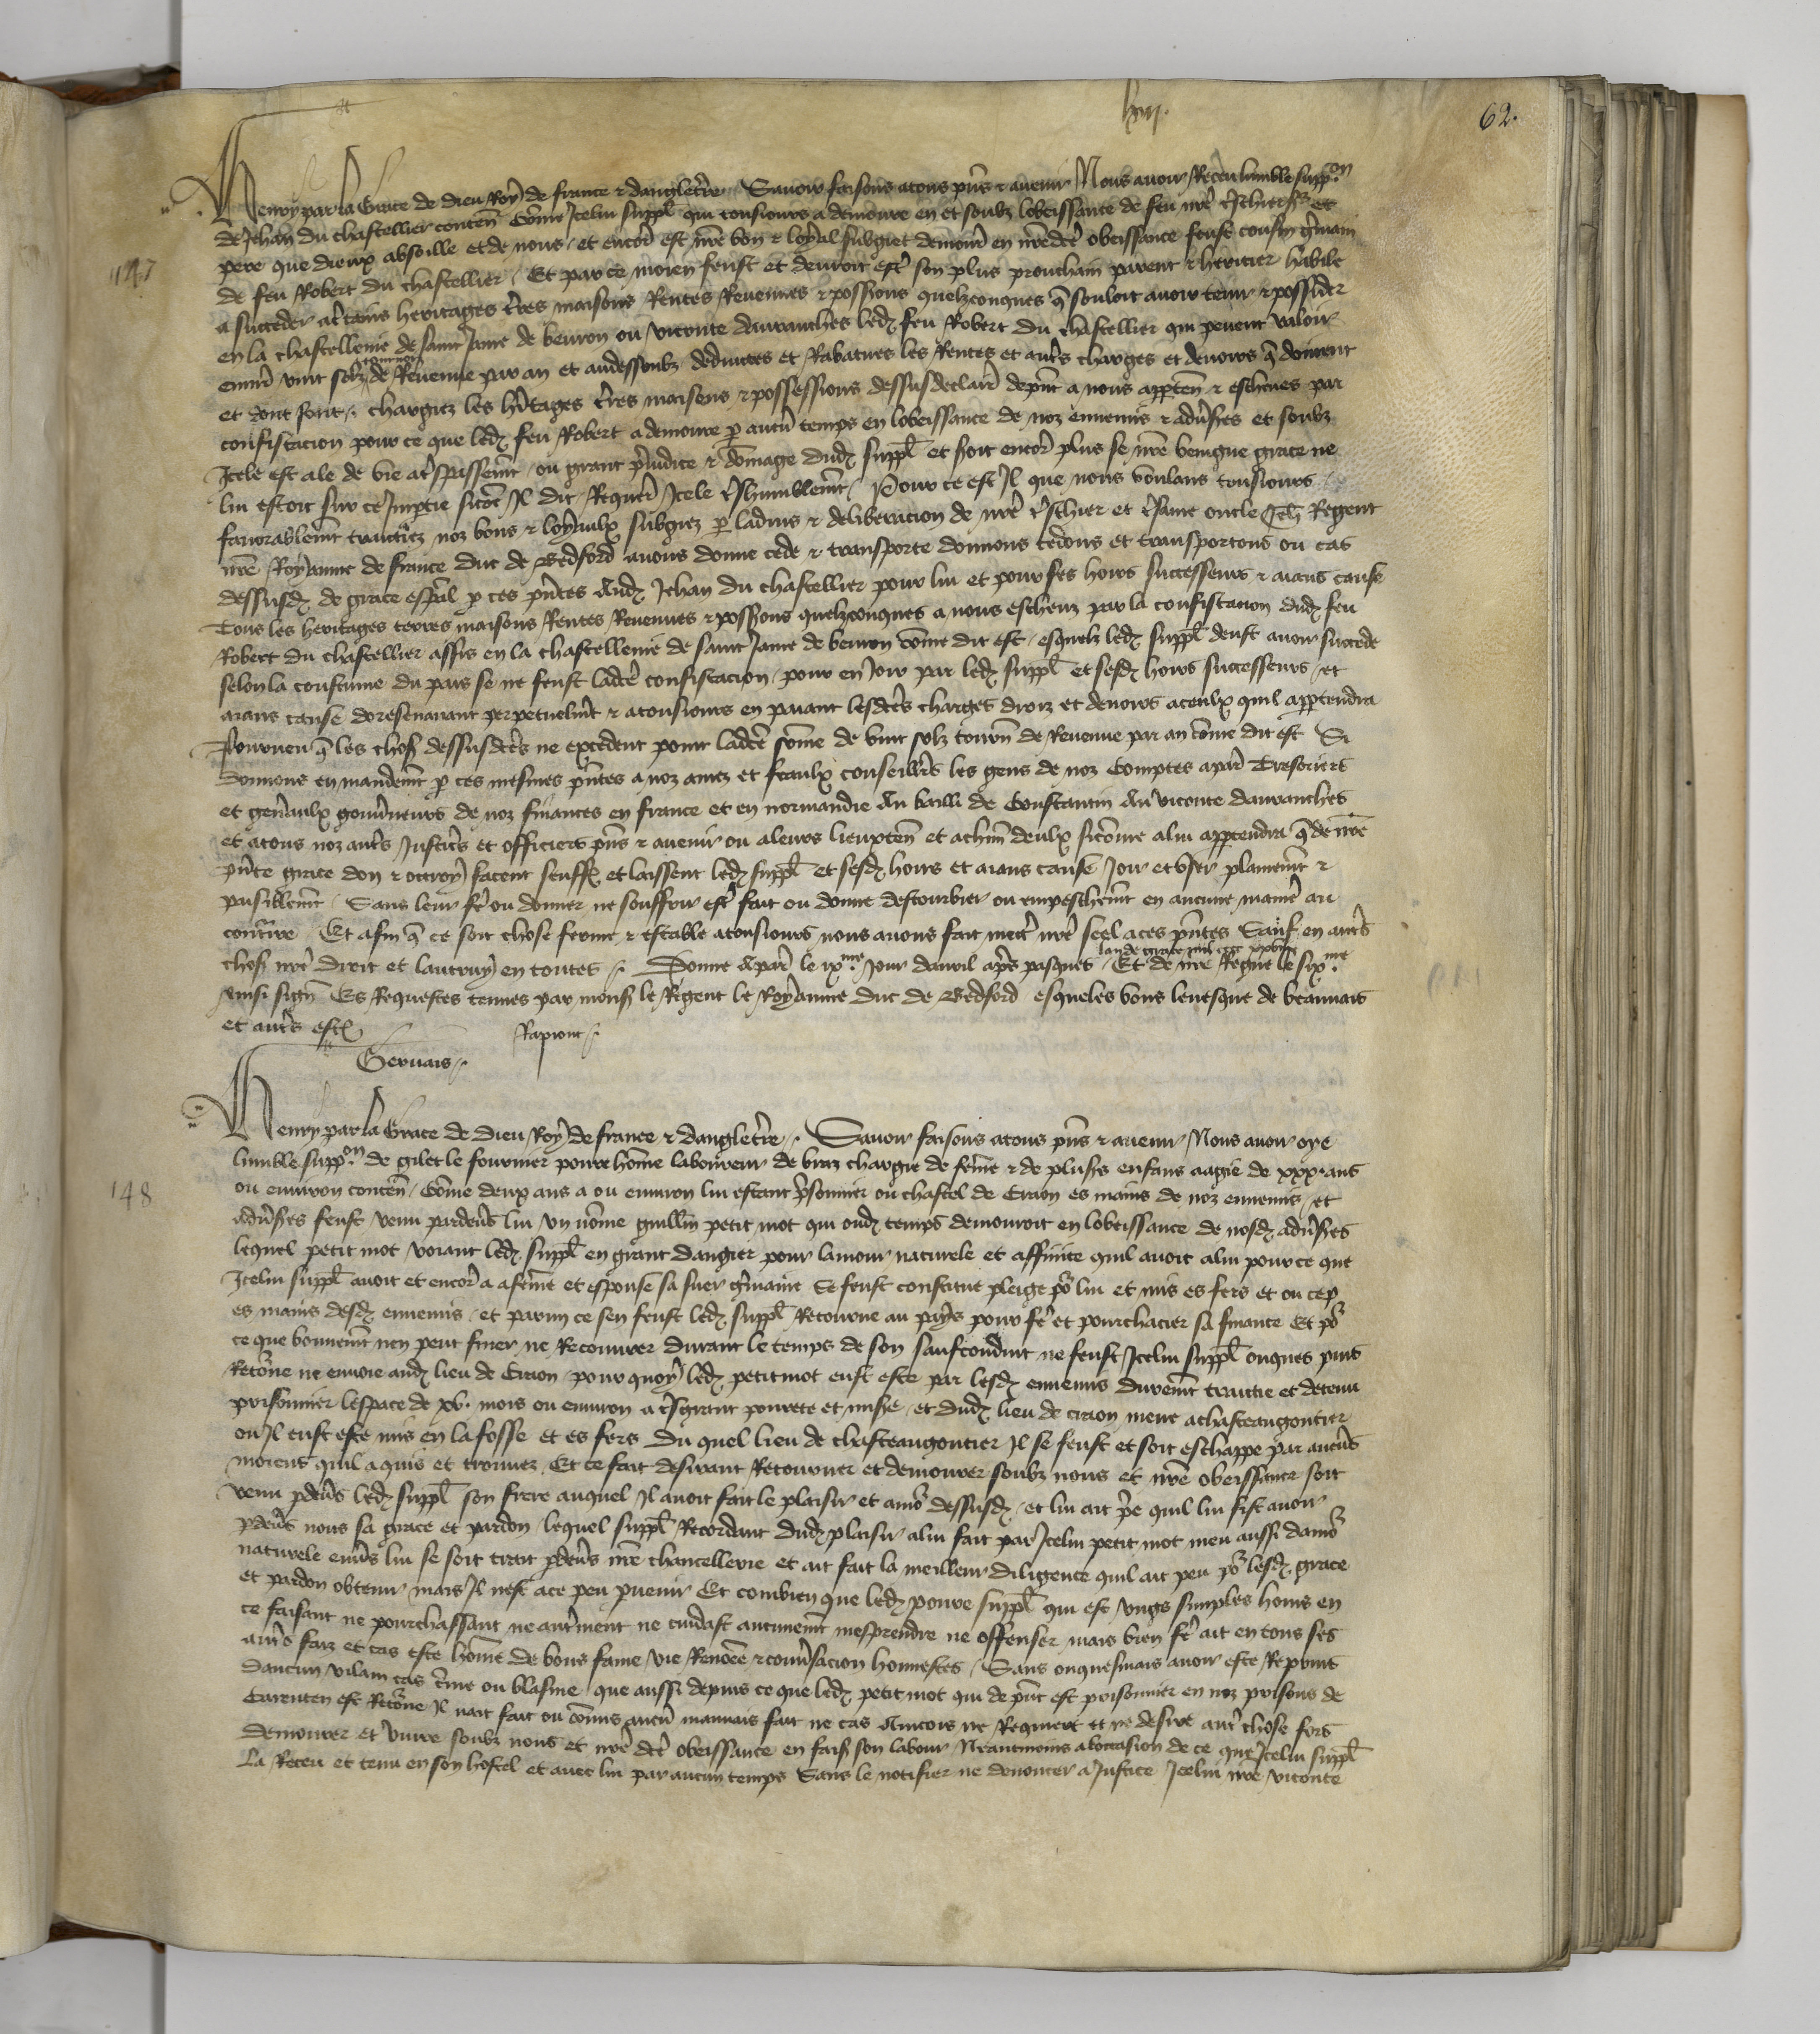 lxii.
62.
147
Henry par la grace de dieu Roy de france & dangleterre. Savoir faisons a tous pñs & avenir Nous avoir Receu lumble supp.on
de Jehan du chastellier conteñ Cõme Icelui suppl̃ qui tousiours a demoure en et soubz lobeissance de feu nr̃e tr̃schier sr et
pere que dieux absoille et de nous, et encor̃ est nr̃e bon & loyal subgiet demour̃ en nr̃edc̃e obeissance feust cousin g̃main
de feu Robert du chastellier, Et par ce moien feust et devroit est̃ son plus prouchain parent & heritier habile
a succeder a c̃tains heritages t̃res maisons Rentes Revenues & possions quelzconques q̃ souloit avoir tenir & possider
en la chastellenie de saint Jame de bevron ou viconte davranches led feu Robert du chastellier qui pevent valoir
envir̃ vint solz tournois de Revenue par an et audessoubz deduictes et Rabatues les Rentes et autr̃s charges et devoirs q̃ doivent
et dont sont chargiez les h̃itages t̃res maisons & possessions dessusdeclair̃ dep̃nt a nous app̃ten̄ & escheues par
confiscacion pour ce que led feu Robert a demoure p aucũ temps en lobeissance de noz ennemis & adũses et soubz
Icele est ale de vie a t̃spassem̃t, ou grant p̃iudice & dõmage dud suppl̃ et soit encor̃ plus se nr̃e benigne grace ne
lui estoit sur ce Imp̃tie sicõe Il dit Requer̃ Icele t̃shumblem̃t, Pour ce est Il que nous voulans tousiours
favorablem̃t traictier noz bons & loyaulx subgiez p ladvis & deliberacion de nr̃e tr̃schier et tr̃same oncle Jeh̃ Regent
nr̃e Royaume de france duc de Bedford avons donne cede & transporte donnons cedons et transportons ou cas
dessusd de grace esp̃al p ces p̃ntes Aud Jehan du chastellier pour lui et pour ses hoirs successeurs & aians cause
Tous les heritages terres maisons Rentes Revenues & possions quelzconques a nous escheuz par la confiscacion dud feu
Robert du chastellier assis en la chastellenie de saint Jame de bevron cõme dit est, esquelz led suppl̃ deust avoir succede
selon la coustume du pais se ne feust ladc̃e confiscacion, pour en Joir par led suppl̃ et sesd hoirs successeurs, et
aians cause doresenavant perpetuelm̃t & a tousiours en paiant lesdc̃es charges droiz et devoirs a ceulx quil app̃tendra
Pourveu q̃ les choses dessusdc̃es ne excedent point ladc̃e sõme de vint solz tourñ de Revenue par an cõme dit est Si
donnons en mandem̃t p ces mesmes p̃ntes a noz amez et feaulx conseill̃rs les gens de noz Comptes a par̃ Tresoriers
et gen̄aulx gouṽneurs de noz finances en france et en normandie Au bailli de Coustantin Au viconte davranches
et a tous noz autr̃s Justic̃s et officiers p̃ns & avenir ou a leurs lieuxteñ et a chũn deulx sicõme a lui app̃tendra q̃ de nr̃e
p̃nte grace don & octroy facent seuffr̃ et laissent led suppl̃ et sesd hoirs et aians cause Joir et user plainem̃t &
paisiblem̃t, Sans leur fẽ ou donner ne souffrir est̃ fait ou donne destourbier ou empeschem̃t en aucune manĩe au
cont̃ire Et afin q̃ ce soit chose ferme & estable a tousiours nous avons fait mectr̃ nr̃e seel a ces p̃ntes Sauf en autr̃s
choses nr̃e droit et lautruy en toutes. Donne a par̃ le ixme. Jour davril apr̃s pasques lan de grace mil cccc xxviii Et de nr̃e Regne le sixme
Ainsi sigñ Es Requestes tenues par mons̃ le Regent le Royaume duc de Bedford esqueles vous levesque de beauvais
et autr̃s est̃
Rapiout
Gervais.
148
Henry par la Grace de Dieu Roy de france & dangleterre. Savoir faisons a tous pñs & avenir Nous avoir oye
lumble supp.on de gilet le fournier povre hõme laboureur de braz chargie de fẽme & de pluss̃ enfans aagie de xxx. ans
ou environ conteñ, Cõme deux ans a ou environ lui estant p̃sonnier ou chastel de Craon es mains de noz ennemis, et
adṽses feust venu pardevs̃ lui un nõme guillm̃ petit mot qui oud temps demouroit en lobeissance de nosd adṽses
lequel petit mot voiant led suppl̃ en grant dangier pour lamour naturele et affinite quil avoit a lui pour ce que
Icelui suppl̃ avoit et encor̃ a a fẽme et espouse sa suer g̃maine Se feust constitue pleige poͬ lui et mis es fers et ou cep
es mains desd ennemis, et parmi ce sen feust led suppl̃ Retourne au pays pour fẽ et pourchacier sa finance Et poͬ
ce que bonnem̃t nen peut finer ne Recouvrer durant le temps de son saufconduit ne feust Icelui suppl̃ onques puis
Retõne ne envoie aud lieu de Craon, pour quoy led petit mot eust este par lesd ennemis durem̃t traictie et detenu
prisonnier lespace de xv. mois ou environ a tr̃sgrant povrete et mis̃e, et dud lieu de craon mene a chasteaugontier
ou Il eust este mis en la fosse et es fers Du quel lieu de chasteaugontier Il se feust et soit eschappe par aucũs
moiens quil a quis et trouvez, Et ce fait desirant Retourner et demourer soubz nous et nr̃e obeissance soit
venu p̃devs̃ led suppl̃ son frere auquel Il avoit fait le plaisir et amoͬ dessusd, et lui ait p̃e quil lui fist avoir
p̃devs̃ nous sa grace et pardon, lequel suppl̃ Recordant dud plaisir a lui fait par Icelui petit mot meu aussi damoͬ
naturele envs̃ lui se soit trait p̃devs̃ nr̃e chancellerie et ait fait la meilleur diligence quil ait peu poͬ lesd grace
et pardon obtenir mais Il nest a ce peu p̃venir Et combien que led povre suppl̃ qui est ungs simples homs en
ce faisant ne pourchassant ne autrem̃ent ne cuidast aucunem̃t mesprendre ne offenser mais bien fẽ ait en tous ses
autr̃s faiz et cas este hõme de bonne fame vie Renõee & conṽsacion honnestes, Sans onquesmais avoir este Reprins
daucun vilain cas c̃ime ou blasme que aussi depuis ce que led petit mot qui de p̃nt est prisonnier en noz prisons de
Carenten est Retõne Il nait fait ou cõmis aucũ mauvais fait ne cas Aincois ne Requiert et ne desire autr̃ chose fors
demourer et vivre soubz nous et nr̃e dc̃e obeissance en fais̃ son labour Neantmoins a loccasion de ce que Icelui suppl̃
la Receu et tenu en son hostel et avec lui par aucun temps Sans le notifier ne denoncer a Justice Icelui nr̃e viconte